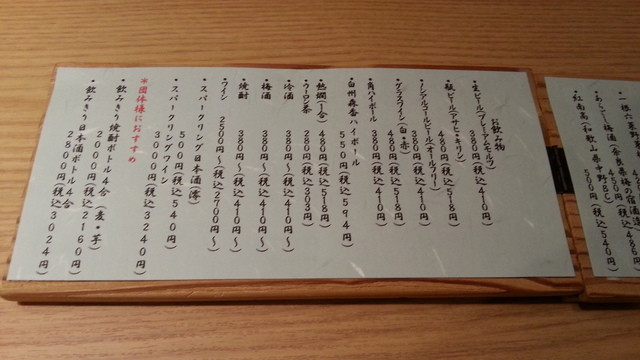 お飲み物
・生ビール(プレミアムモルツ)
380円(税込410円)
・瓶ビール(アサヒ・キリン)
480円(税込518円)
・ノンアルコールビール(オールフリー)
380円(税込410円)
・グラスワイン(白・赤)
480円(税込518円)
・角ハイボール
380円(税込410円)
・白州森香ハイボール
550円(税込594円)
・熱燗(1合)
480円(税込518円)
・ウーロン茶
280円(税込303円)
・冷酒
380円(税込410円)~
・梅酒
380円(税込410円)~
・焼酎
380円(税込410円)~
・ワイン
2500円~(税込2700円)~
・スパークリング日本酒(澪)
500円(税込540円)
・スパークリングワイン
3000円(税込3240円)
※団体様におすすめ
・飲みきり焼酎ボトル4合(麦・芋)
2000円(税込2160円)
・飲みきり日本酒ボトル4合
2800円(税込3024円)
450円(税込486円)
・あらごし梅酒(奈良県梅の宿酒造)
・紅南高(和歌山県中野BC)
500円(税込540円)